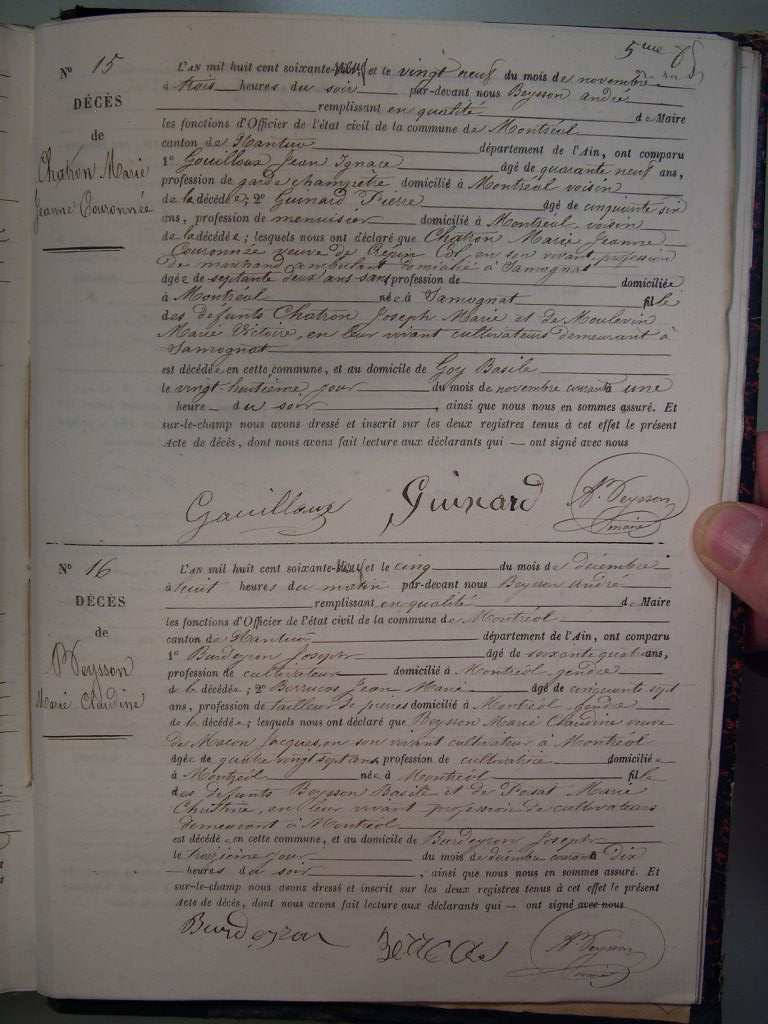 5me
N° 15
DÉCÈS
de
Chatron Marie
Jeanne Couronnée
L'AN mil huit cent soixante-neuf et le vingt neuf du mois de novembre
à trois heures du soir par-devant nous Beysson André
remplissant en qualité de Maire
les fonctions d'Officier de l'état civil de la commune de Montréal
canton de Nantua département de l'Ain, ont comparu
1° Gouilloux Jean Ignace âgé de quarante neuf ans,
profession de garde champêtre domicilié à Montréal voisin
de la décédée; 2° Guinard Pierre âgé de cinquante six
ans, profession de menuisier domicilié à Montréal, voisin
de la décédée; lesquels nous ont déclaré que Chatron Marie Jeanne
Couronnée veuve de Crépin Col, en son vivant profession
de marchand ambulant domicilié à Samognat
âgée de septante deux ans sans profession de domiciliée
à Montréal née à Samognat fille
des defunts Chatron Joseph Marie et de Moulevin
Marie Victoire, en leur vivant cultivateurs demeurant à
Samognat
est décédée en cette commune, et au domicile de Goy Basile
le vingt-huitième jour du mois de novembre courant à une
heure du soir, ainsi que nous nous en sommes assuré. Et
sur-le-champ nous avons dressé et inscrit sur les deux registres tenus à cet effet le présent
Acte de décès, dont nous avons fait lecture aux déclarants qui — ont signé avec nous
Gouilloux Guinard A. Beysson
maire
N° 16
DÉCÈS
de
Beysson
Marie Claudine
L'AN mil huit cent soixante-neuf et le cinq du mois de décembre
à huit heures du matin par-devant nous Beysson André
remplissant en qualité de Maire
les fonctions d'Officier de l'état civil de la commune de Montréal
canton de Nantua département de l'Ain, ont comparu
1° Burdeyron Joseph âgé de soixante quatre ans,
profession de cultivateur domicilié à Montréal gendre
de la décédée; 2° Berrucas Jean Marie âgé de cinquante sept
ans, profession de tailleur de pierres domicilié à Montréal gendre
de la décédée; lesquels nous ont déclaré que Beysson Marie Claudine veuve
de Macon Jacques, en son vivant cultivateur à Montréal
âgée de quatre vingt sept ans profession de cultivatrice domiciliée
à Montréal née à Montréal fille
des defunts Beysson Basile et de Posat Marie
Christine, en leur vivant profession de cultivateurs
demeurant à Montréal
est décédée en cette commune, et au domicile de Burdeyron Joseph
le du mois de décembre courant à dix
heures du soir, ainsi que nous nous en sommes assuré. Et
sur-le-champ nous avons dressé et inscrit sur les deux registres tenus à cet effet le présent
Acte de décès, dont nous avons fait lecture aux déclarants qui — ont signé avec nous
Burdeyron A. Beysson
maire